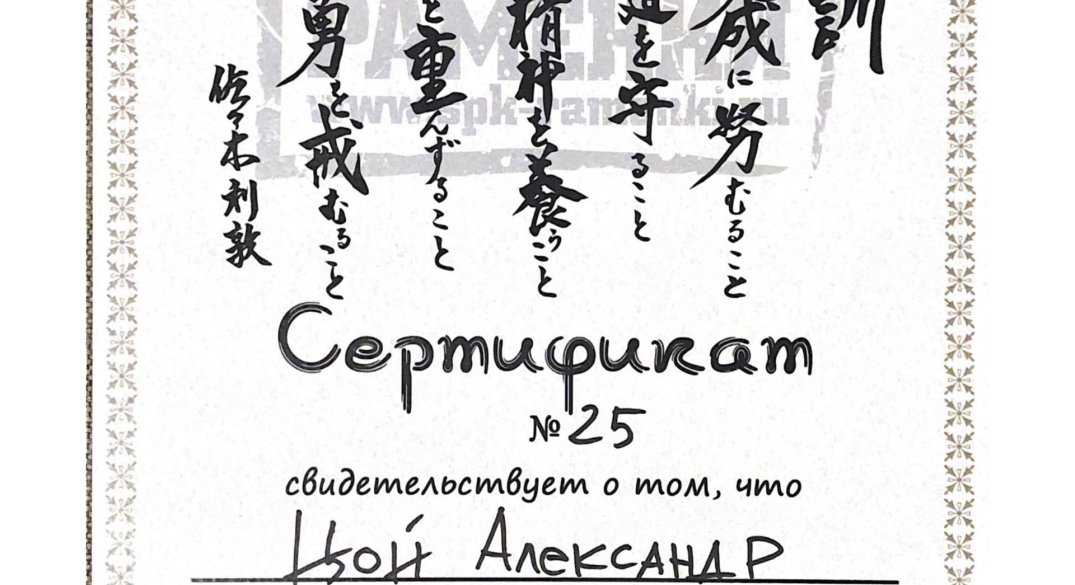 訓
成に努むること
道を守ること
精神を養うこと
を重んずること
勇を戒むること
佐々木利敦
РАМЕНКИ
www.spk-ramenki.ru
Сертификат
№ 25
свидетельствует о том, что
Цой Александр